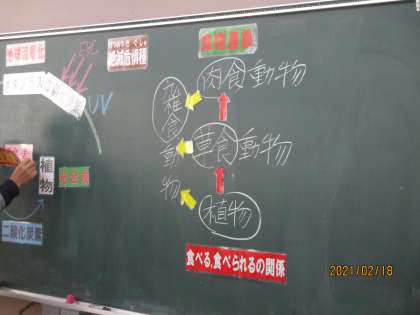 地球温暖化
絶滅危惧種
食物連鎖
UV
肉食動物
雑食動物
草食動物
植物
植物
光合成
二酸化炭素
食べる,食べられるの関係
2021/02/18